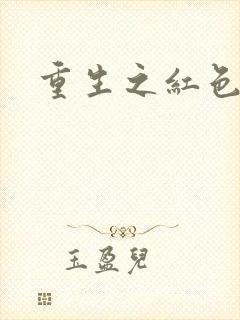 重生之紅色
玉盈兒